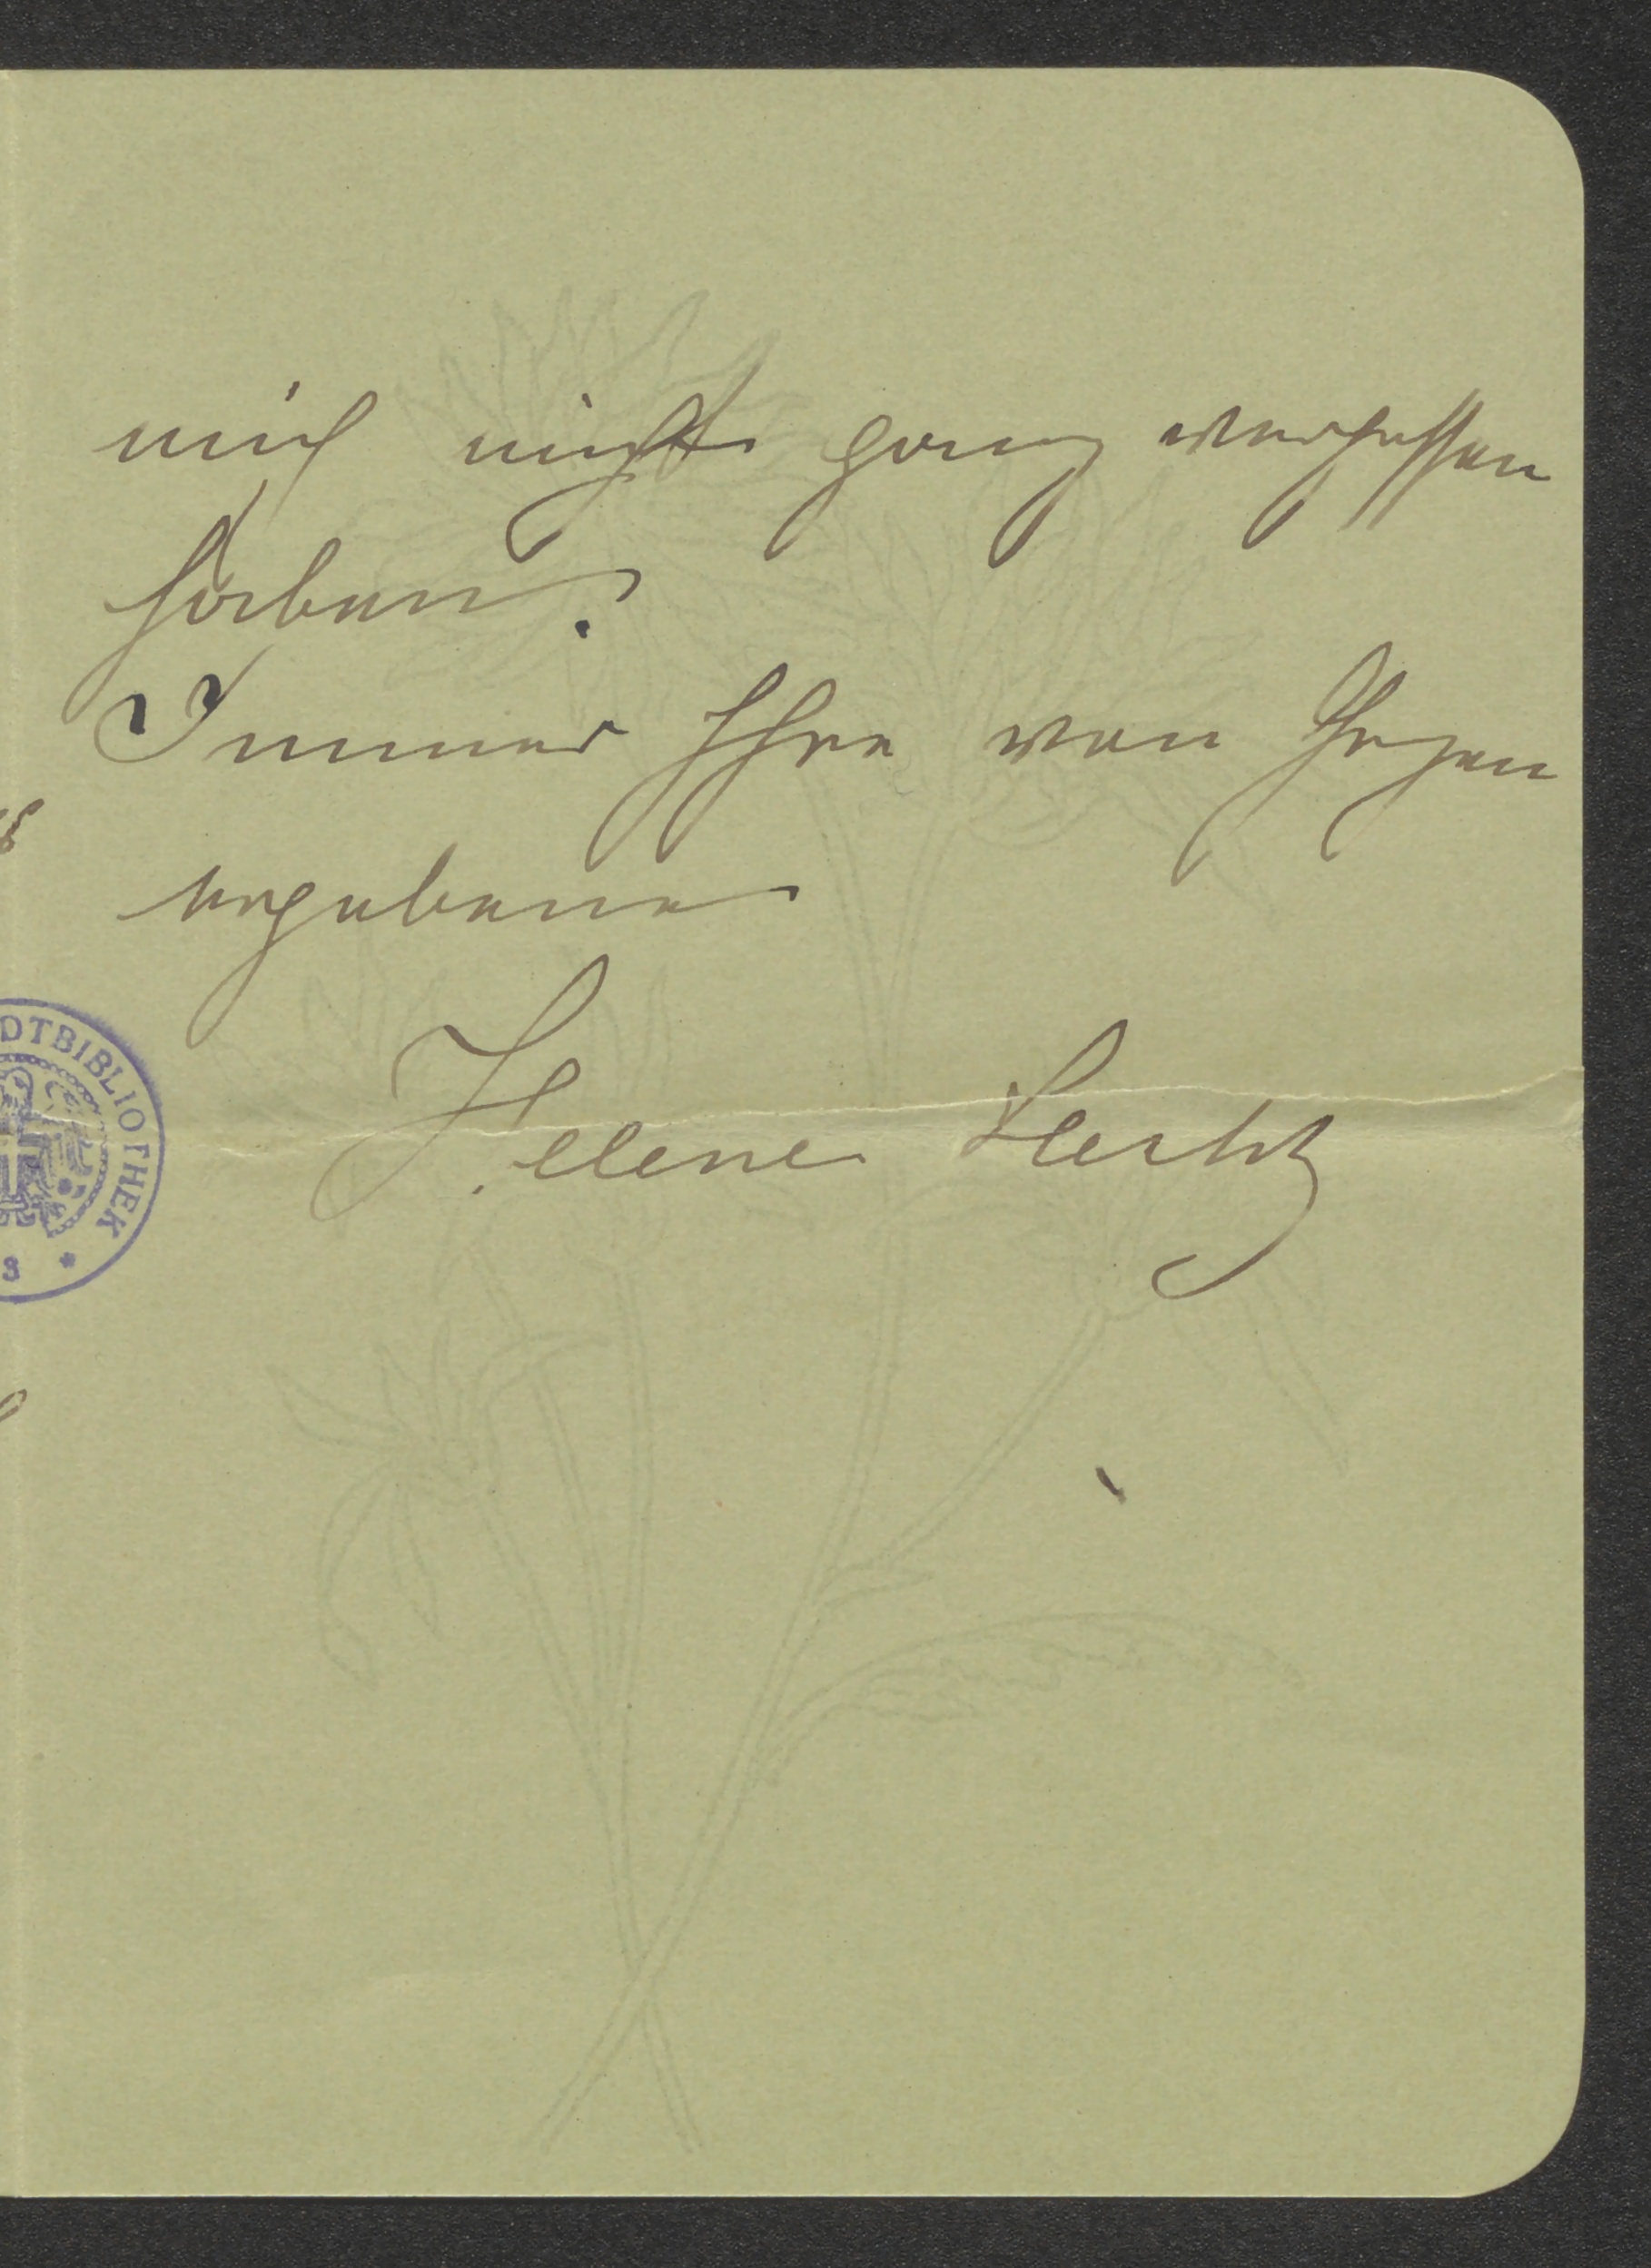 mich nicht ganz vergessen
haben?
Immer Ihre von Herzen
ergebene
Helene Hertz
DTBIBLIOTHEK